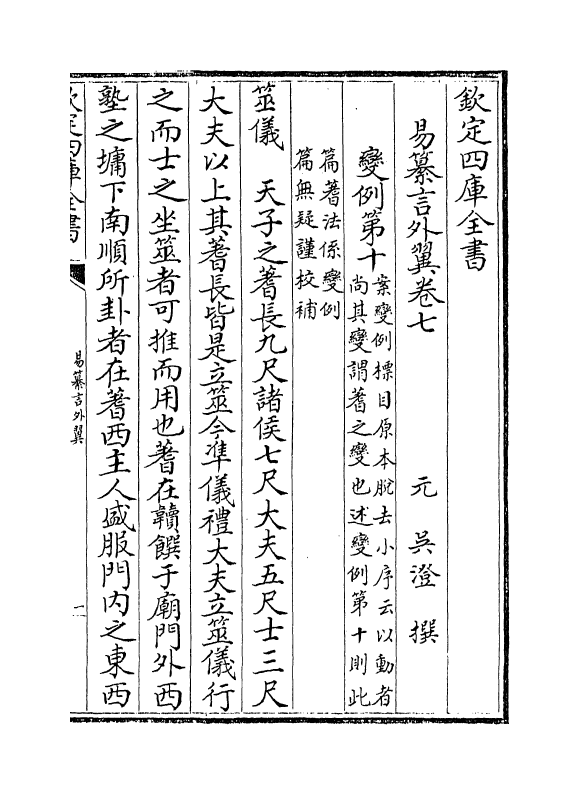 欽定四庫全書
易纂言外翼卷七
元 吳澄 撰
變例第十
案變例摽目原本脫去小序云以動者
尚其變謂蓍之變也述變例第十則此
篇蓍法係變例
篇無疑謹校補
筮儀 天子之蓍長九尺諸侯七尺大夫五尺士三尺
大夫以上其蓍長皆是立筮今準儀禮大夫立筮儀行
之而士之坐筮者可推而用也蓍在韇饌于廟門外西
塾之墉下南順所卦者在蓍西主人盛服門內之東西
欽定四庫全書
易纂言外翼
一